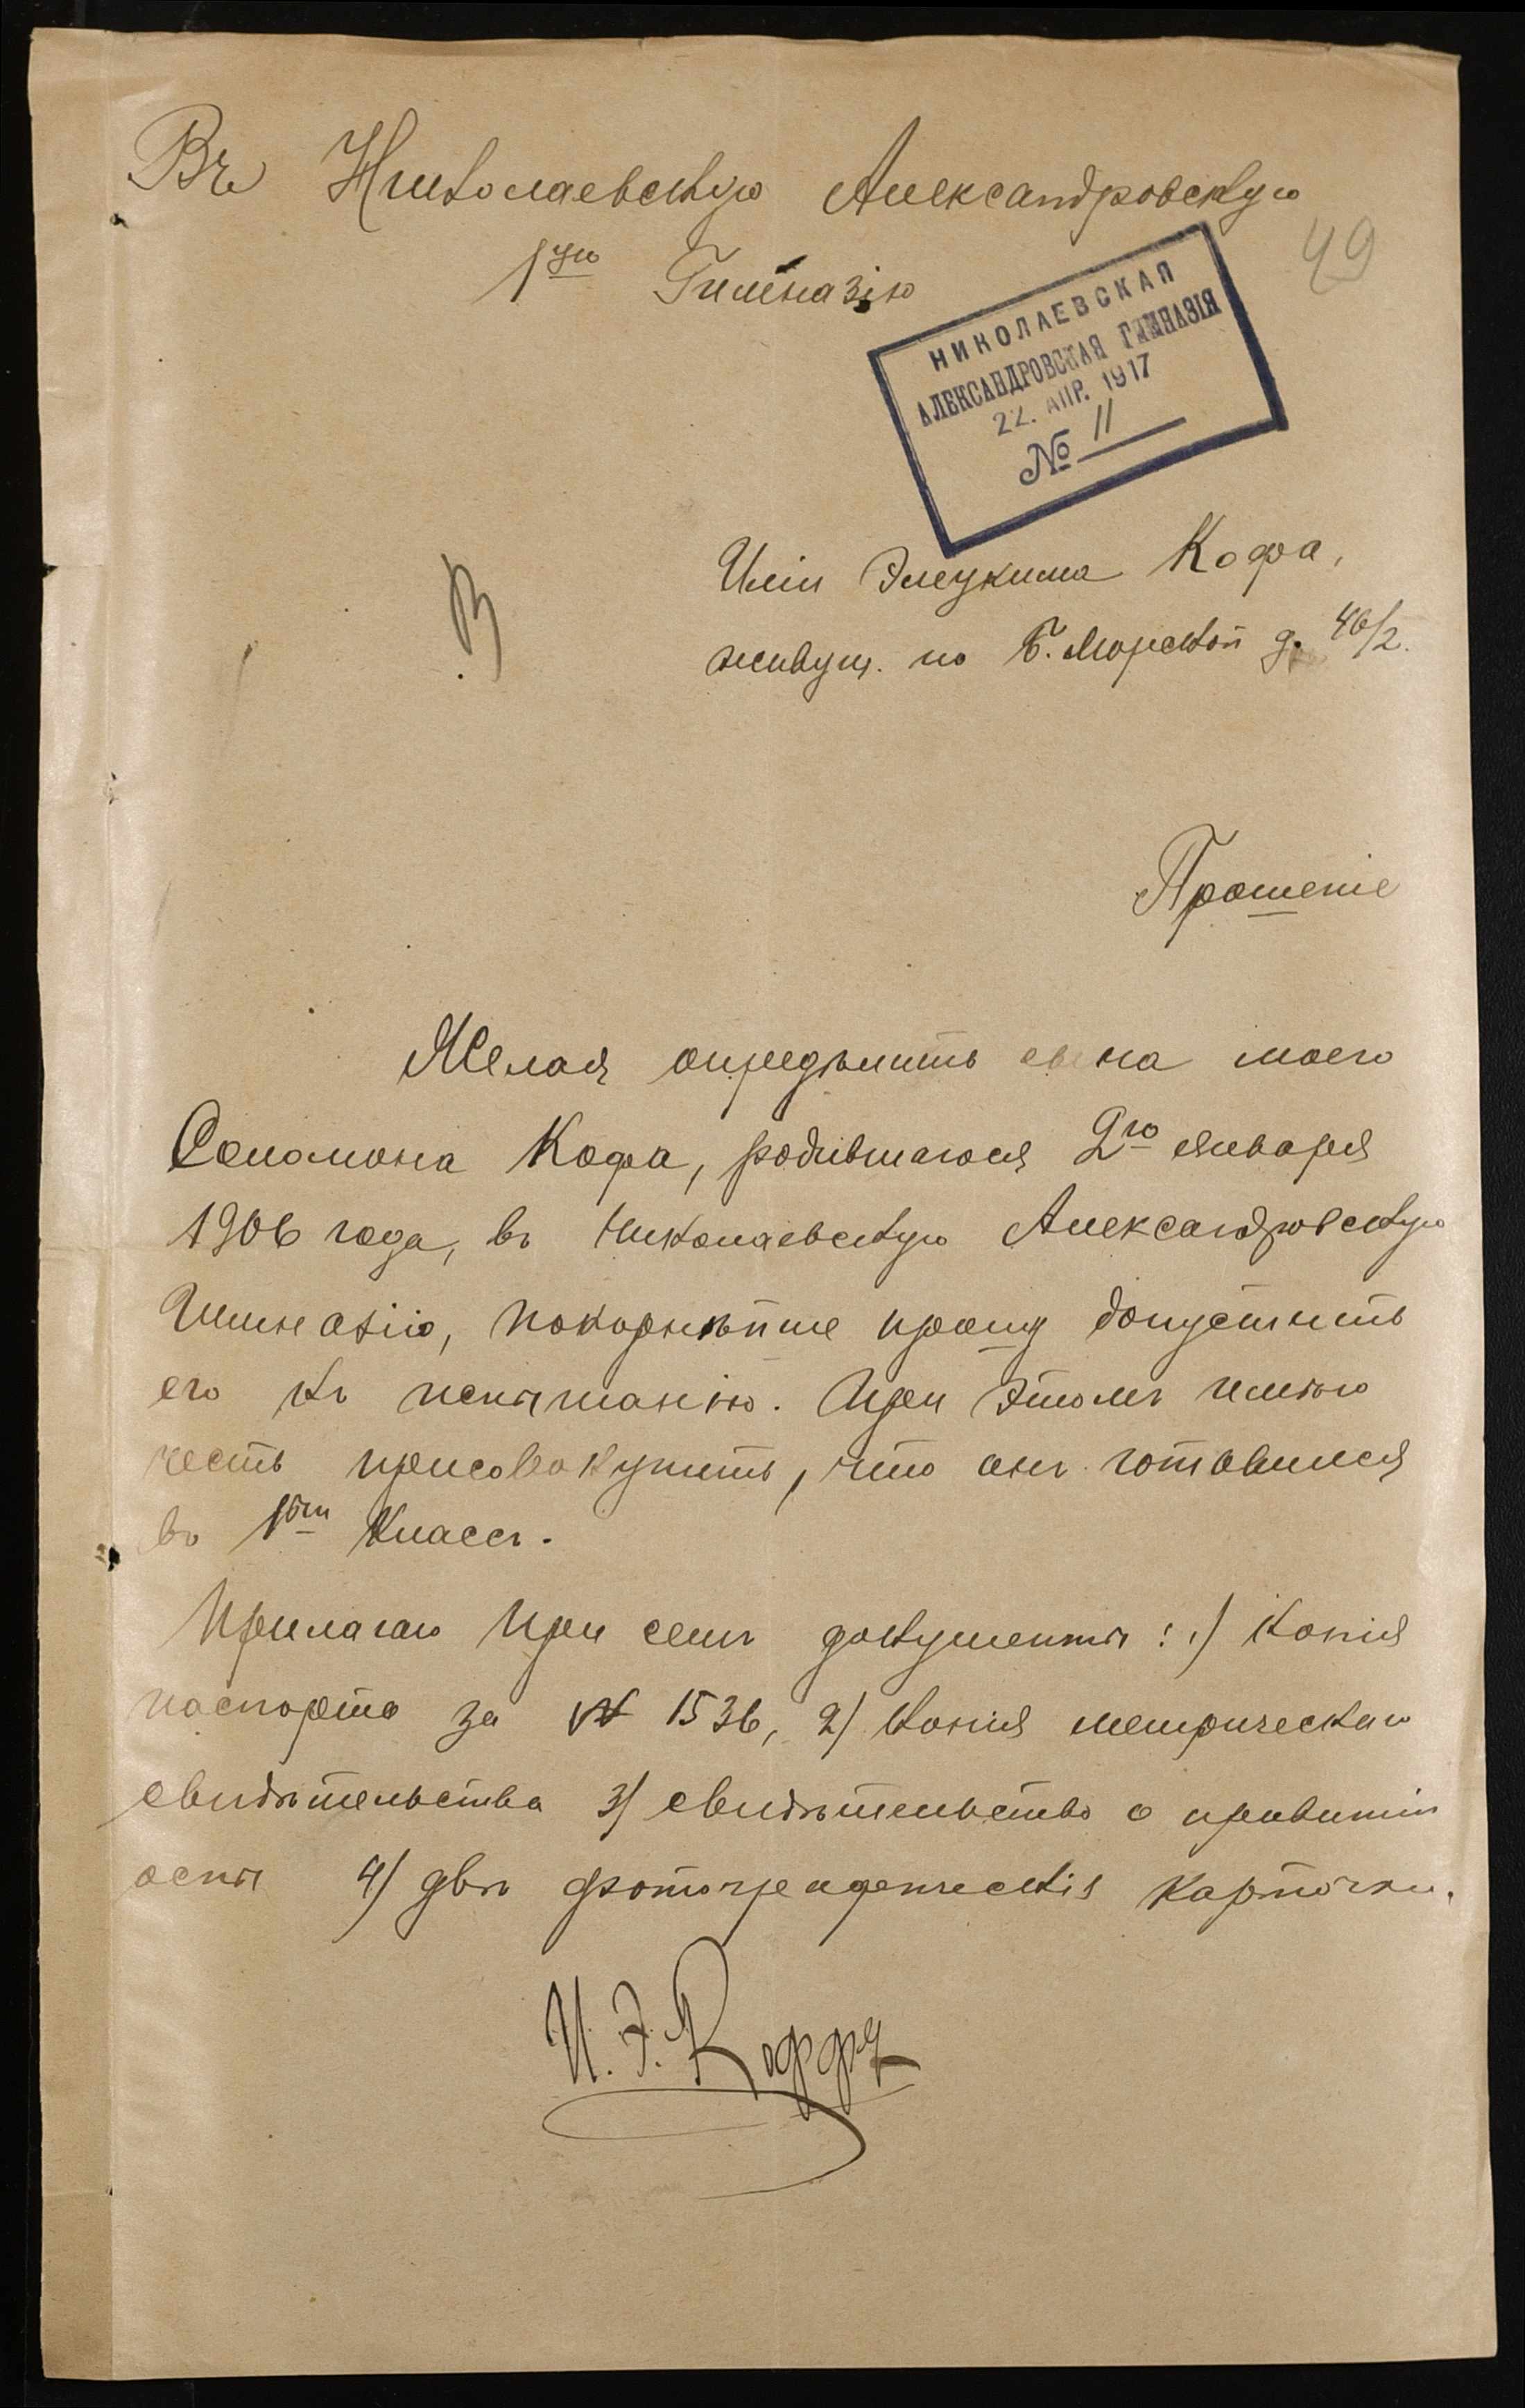 Въ Николаевскую Александровскую
1ую Гимназію
49
НИКОЛАЕВСКАЯ
АЛЕКСАНДРОВСКАЯ ГИМНАЗІЯ
22. АПР. 1917
№ 11
Кофа,
живущ. по Б. Морской д. 46/2.
В
Прошеніе
Желая опредѣлить сына моего
Соломона Кофа, родившагося 2го января
1906 года, въ Николаевскую Александровскую
Гимназію, покорнѣйше прошу допустить
его къ испытанію. При этомъ имѣю
честь присовокупить, что онъ готовился
въ 1ый классъ.
Прилагаю при семъ документы: 1) Копія
паспорта за № 1536, 2) Копія метрическаго
свидѣтельства 3) свидѣтельство о привитіи
оспы 4) двѣ фотографическія карточки.
И. Э. Коффъ